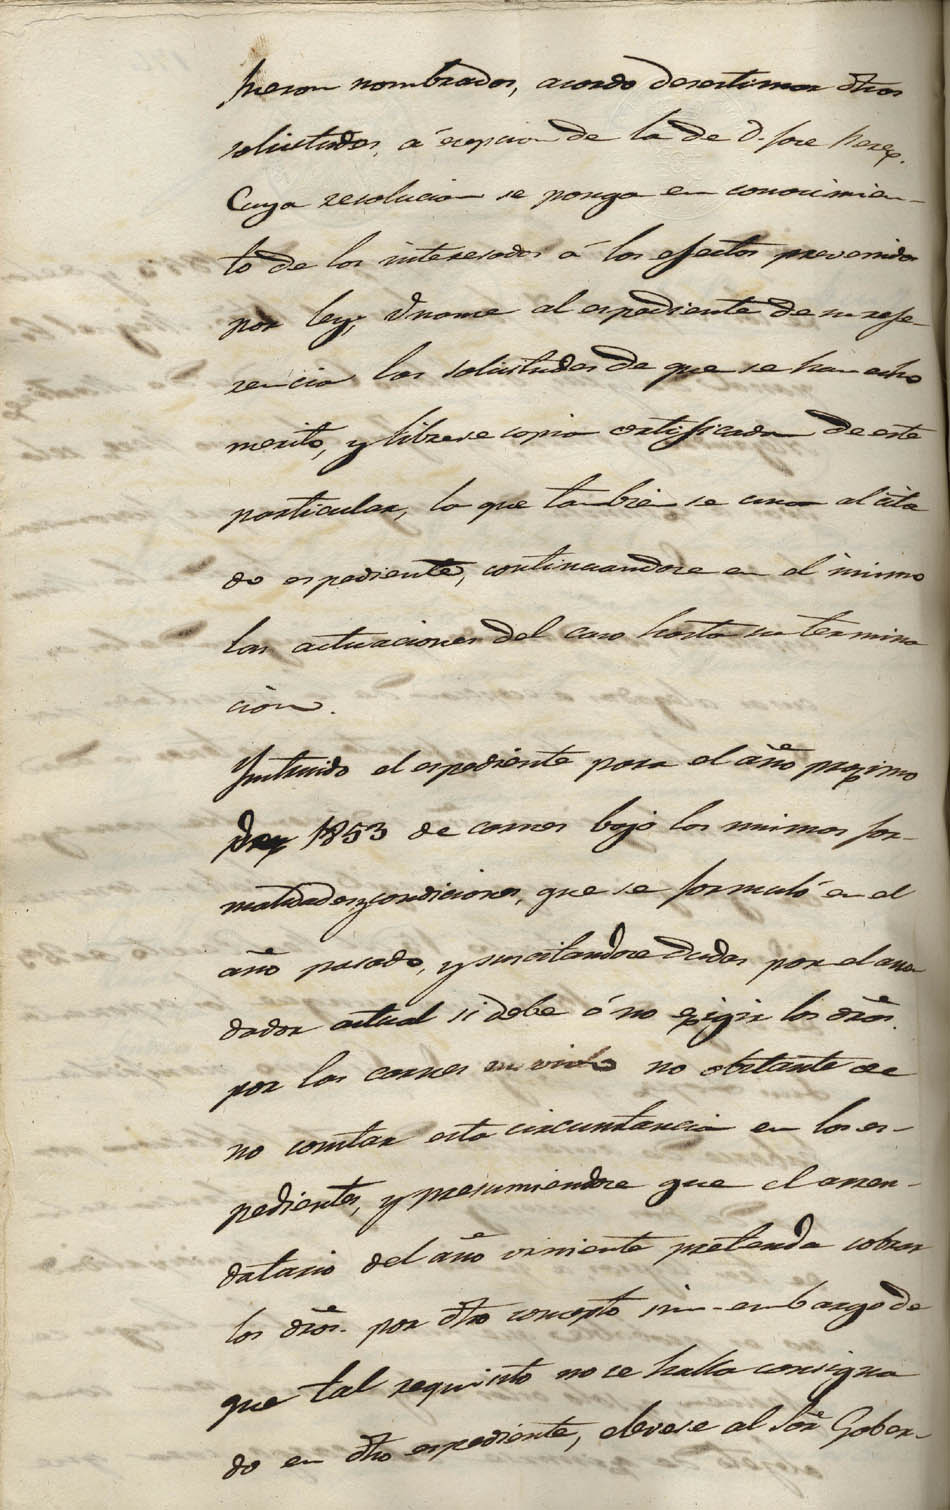 fueron nombrados, acordo desestimar dhas
solicitudes, á ecepcion de la de D. Jose Perez.
Cuya resolucion se ponga en conocimien-
to de los interesados á los efectos prevenidos
por ley; únanse al espediente de su refe-
rencia las solicitudes de que se han echo
merito, y librese copia certificada de este
particular, la que tambien se una al cita
do espediente, continuandose en el mismo
las actuaciones del caso hasta su termina
cion.
Instruido el espediente para el año proximo
1853 de carnes bajo las mismas for-
malidades y condiciones, que se formuló en el
año pasado, y suscitandose dudas por el arren
dador actual si debe ó no exigir los dros.
por las carnes en vivo no obstante de
no constar esta circunstancia en los es-
pedientes, y presumiendose que el arren-
datario del año viniente pretenda cobrar
los dros. por dho concepto sin-embargo de
que tal requisito no se halla consigna
do en dho espediente, elevese al Sor Gober-